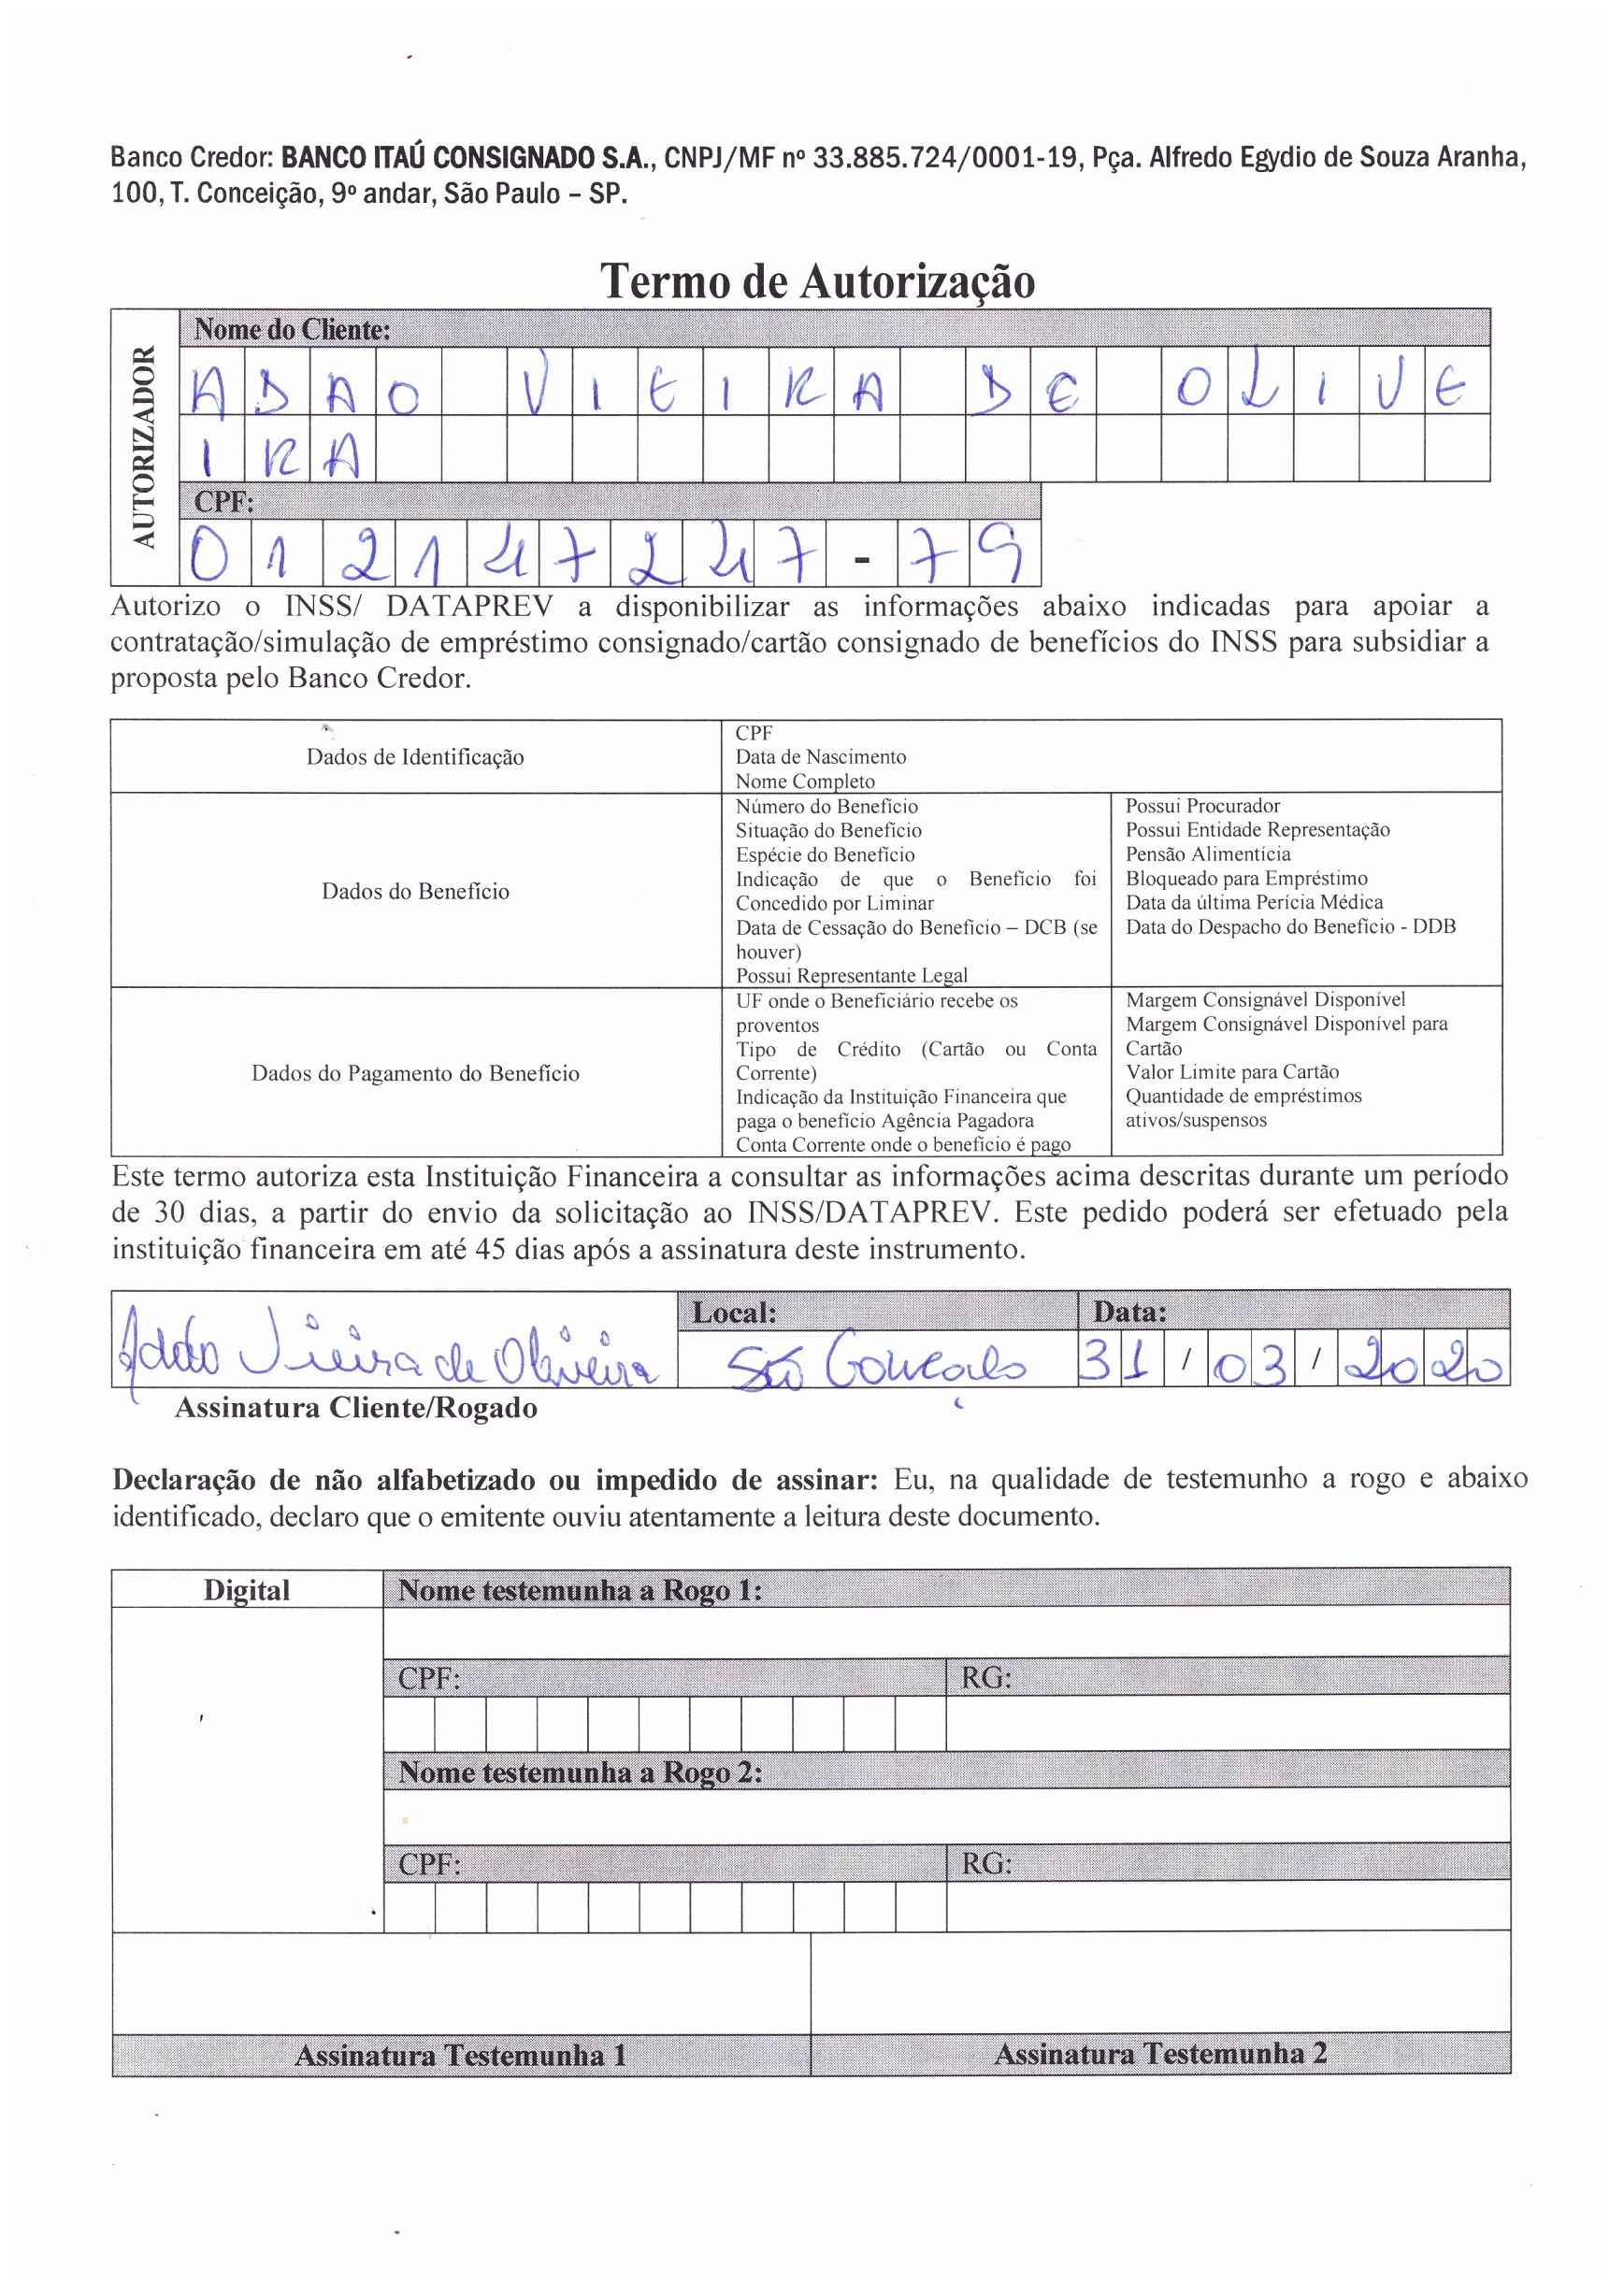 Banco Credor: BANCO ITAÚ CONSIGNADO S.A., CNPJ/MF nº 33.885.724/0001-19, Pça. Alfredo Egydio de Souza Aranha,
100, T. Conceição, 9º andar, São Paulo – SP.
Termo de Autorização
AUTORIZADOR
Nome do Cliente:
ADAO VIEIRA DE OLIVE
IRA
CPF:
012147247-79
Autorizo o INSS/ DATAPREV a disponibilizar as informações abaixo indicadas para apoiar a
contratação/simulação de empréstimo consignado/cartão consignado de benefícios do INSS para subsidiar a
proposta pelo Banco Credor.
Dados de Identificação
CPF
Data de Nascimento
Nome Completo
Dados do Benefício
Número do Benefício
Situação do Benefício
Espécie do Benefício
Indicação de que o Benefício foi
Concedido por Liminar
Data de Cessação do Benefício – DCB (se
houver)
Possui Representante Legal
Possui Procurador
Possui Entidade Representação
Pensão Alimentícia
Bloqueado para Empréstimo
Data da última Perícia Médica
Data do Despacho do Benefício - DDB
Dados do Pagamento do Benefício
UF onde o Beneficiário recebe os
proventos
Tipo de Crédito (Cartão ou Conta
Corrente)
Indicação da Instituição Financeira que
paga o benefício Agência Pagadora
Conta Corrente onde o benefício é pago
Margem Consignável Disponível
Margem Consignável Disponível para
Cartão
Valor Limite para Cartão
Quantidade de empréstimos
ativos/suspensos
Este termo autoriza esta Instituição Financeira a consultar as informações acima descritas durante um período
de 30 dias, a partir do envio da solicitação ao INSS/DATAPREV. Este pedido poderá ser efetuado pela
instituição financeira em até 45 dias após a assinatura deste instrumento.
Adão Vieira de Oliveira
Local:
São Gonçalo
Data:
31/03/2020
Assinatura Cliente/Rogado
Declaração de não alfabetizado ou impedido de assinar: Eu, na qualidade de testemunho a rogo e abaixo
identificado, declaro que o emitente ouviu atentamente a leitura deste documento.
Digital
Nome testemunha a Rogo 1:
CPF:
RG:
Nome testemunha a Rogo 2:
CPF:
RG:
Assinatura Testemunha 1
Assinatura Testemunha 2